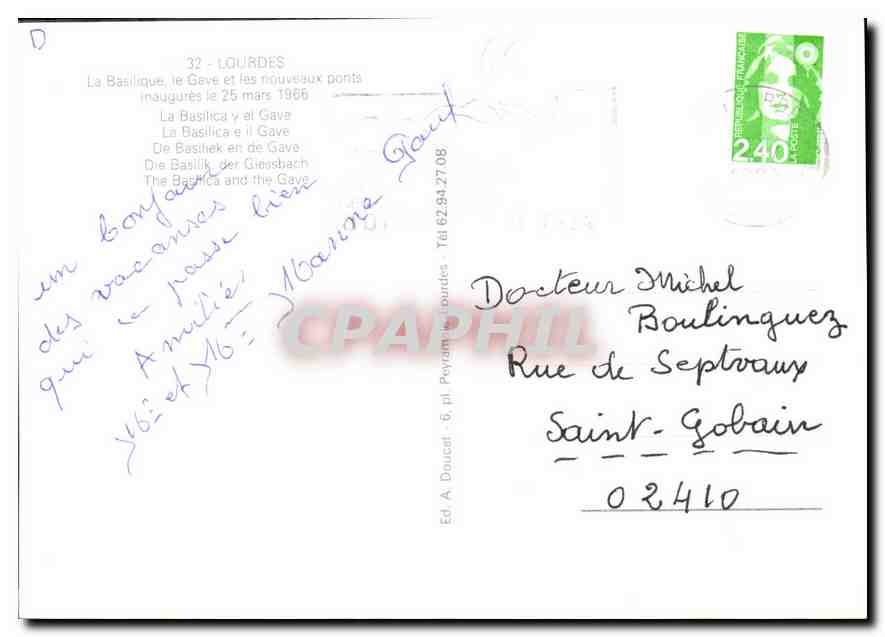 D
32 - LOURDES
La Basilique, le Gave et les nouveaux ponts
inaugurés le 25 mars 1966
La Basilica y el Gave
La Basilica e il Gave
De Basiliek en de Gave
Die Basilik der Giessbach
The Basilica and the Gave
un bonjour
des vacanses
qui se passe bien
Amitiés
et
Ed. A. Doucet - 6, pl. Peyramale, Lourdes - Tél 62.94.27.08
REPUBLIQUE FRANÇAISE
2,40
LA POSTE
CPAPHIL
Docteur Michel
Boulinguez
Rue de Septvaux
Saint-Gobain
02410